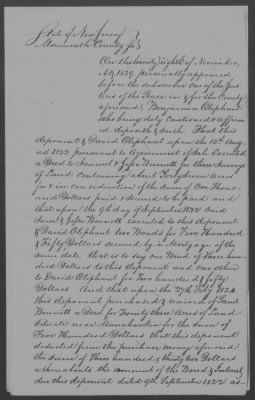 State of New Jersey
Monmouth County Ss
On the twenty eighth of November
1839 personally appeared
before the subscriber one of the Jus
tices of the Peace in & for the County
aforesaid Benjamin Oliphant
who being duly Cautioned & affirm
ed deposeth & saith That this
deponent & David Oliphant upon the 10th Aug
ust 1822 pursuant to agreement of Sale Executed
a Deed to Samuel & Jesse Bennett for three Surveys
of Land containing about Forty Seven Acres
for & in consideration of the sum of One Thous
and Dollars paid & secured to be paid and
that upon the 9th day of September 1822 Said
Saml & Jesse Bennett executed to this deponent
& David Oliphant two Bonds for Five Hundred
& Fifty Dollars secured by a Mortgage of the
same date that is to say one Bond of Three hun
dred Dollars to this deponent and one other
to David Oliphant for Two hundred & fifty
Dollars And that upon the 27th Feby 1824
this deponent purchased & received of Saml
Bennett a Deed for Twenty three Acres of Land
Situate near Manahawkin for the sum of
Five Hundred Dollars that this deponent
deducted from the purchase money aforesaid
the sum of Three hundred & thirty two Dollars
or thereabouts the amount of the Bond & Interest
due this deponent dated 9th September 1822 as